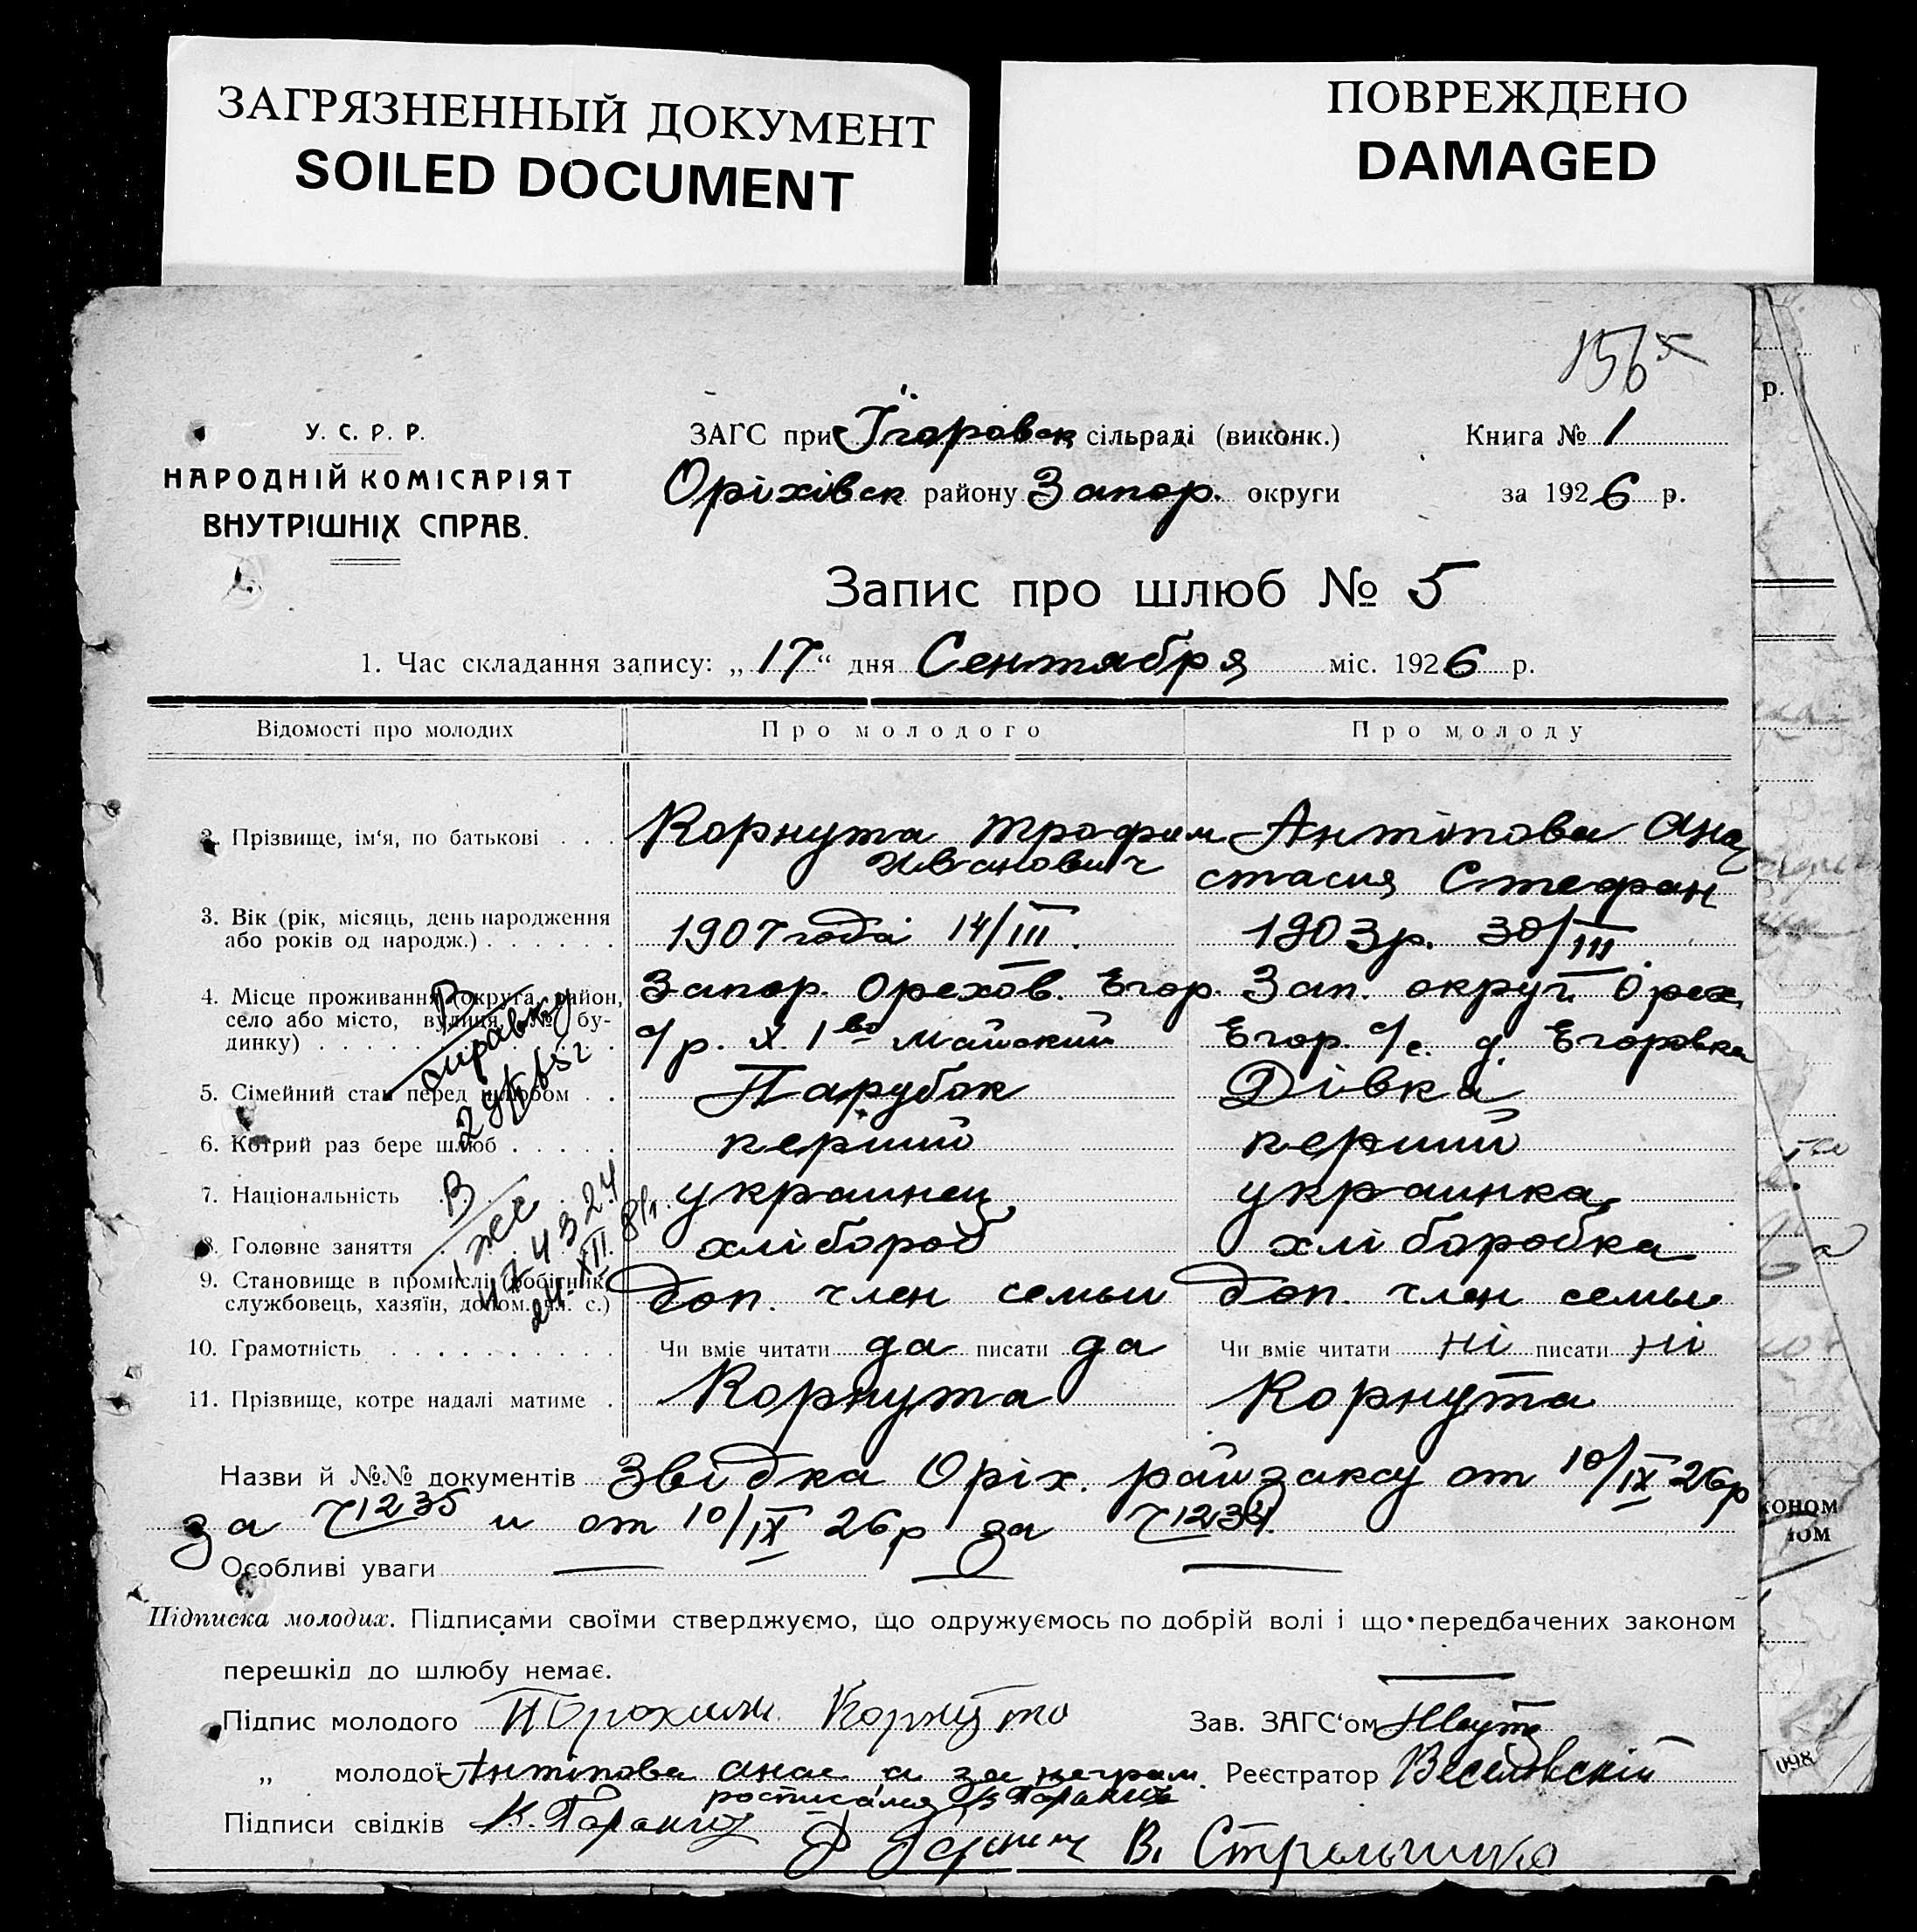 ЗАГРЯЗНЕННЫЙ ДОКУМЕНТ
SOILED DOCUMENT
ПОВРЕЖДЕНО
DAMAGED
156
р.
У. С. Р. Р.
НАРОДНІЙ КОМІСАРІЯТ
ВНУТРІШНІХ СПРАВ.
ЗАГС при Ігоровск сільраді (виконк.) Книга № 1
Оріхівск району Запор. округи за 1926 р.
Запис про шлюб № 5
1. Час складання запису: „17“ дня Сентября міс. 1926 р.
Відомості про молодих Про молодого Про молоду
2. Прізвище, ім‘я, по батькові Корнута Трофим Антіпова Ана
Иванович стасия Стефан
3. Вік (рік, місяць, день народження
або років од народж.) 1907 года 14/III. 1903 р. 30/III.
4. Місце проживання (округа, район, Запор. Орехов. Егор. Зап. округ. Орех
село або місто, вулиця, № бу-
динку) с/р. х. 1во Майский Егор. с/с. д. Егоровка
В справку
5. Сімейний стан перед шлюбом Парубок Дівка
6. Котрий раз бере шлюб перший перший
7. Національність украинец украинка
8. Головне заняття хлібороб хліборобка
В
24.XII.81г.
9. Становище в промислі (робітник,
службовець, хазяїн, допом. чл. с.) доп. член семьи доп. член семьи
10. Грамотність Чи вміє читати да писати да Чи вміє читати ні писати ні
11. Прізвище, котре надалі матиме Корнута Корнута
Назви й №№ документів Звідка Оріх. райзаксу от 10/IX 26р
за ч 1235 и от 10/IX 26р за ч 1234.
Особливі уваги
Підписка молодих. Підписами своїми стверджуємо, що одружуємось по добрій волі і що передбачених законом
перешкід до шлюбу немає.
Підпис молодого Корнута Зав. ЗАГС‘ом
„ молодої Антіпова анас а за неграм. Реєстратор Веселовскій
росписался
Підписи свідків К. В. Стрельчико